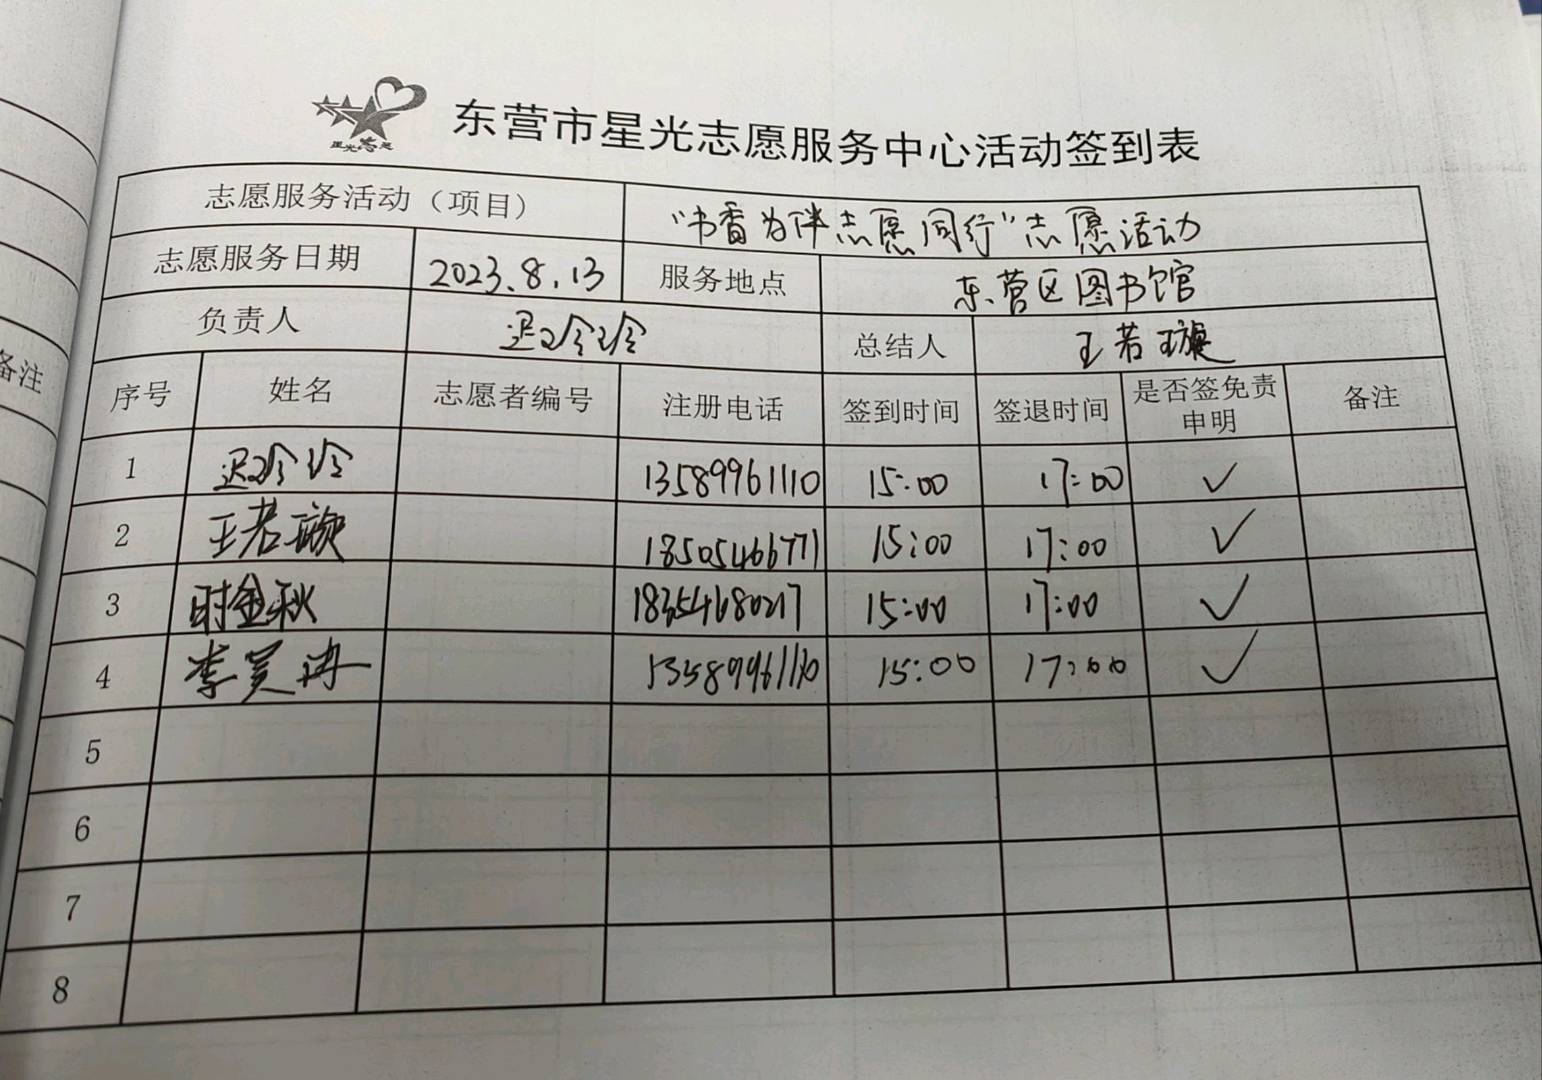 东营市星光志愿服务中心活动签到表
志愿服务活动（项目） “书香为伴志愿同行”志愿活动
志愿服务日期 2023.8.13 服务地点 东营区图书馆
负责人 迟玲玲 总结人 王若璇
备注
序号 姓名 志愿者编号 注册电话 签到时间 签退时间 是否签免责申明 备注
1 迟玲玲 13589961110 15:00 17:00 ✓
2 王若璇 18505466771 15:00 17:00 ✓
3 时金秋 18354680217 15:00 17:00 ✓
4 李昊冉 13589961110 15:00 17:00 ✓
5
6
7
8